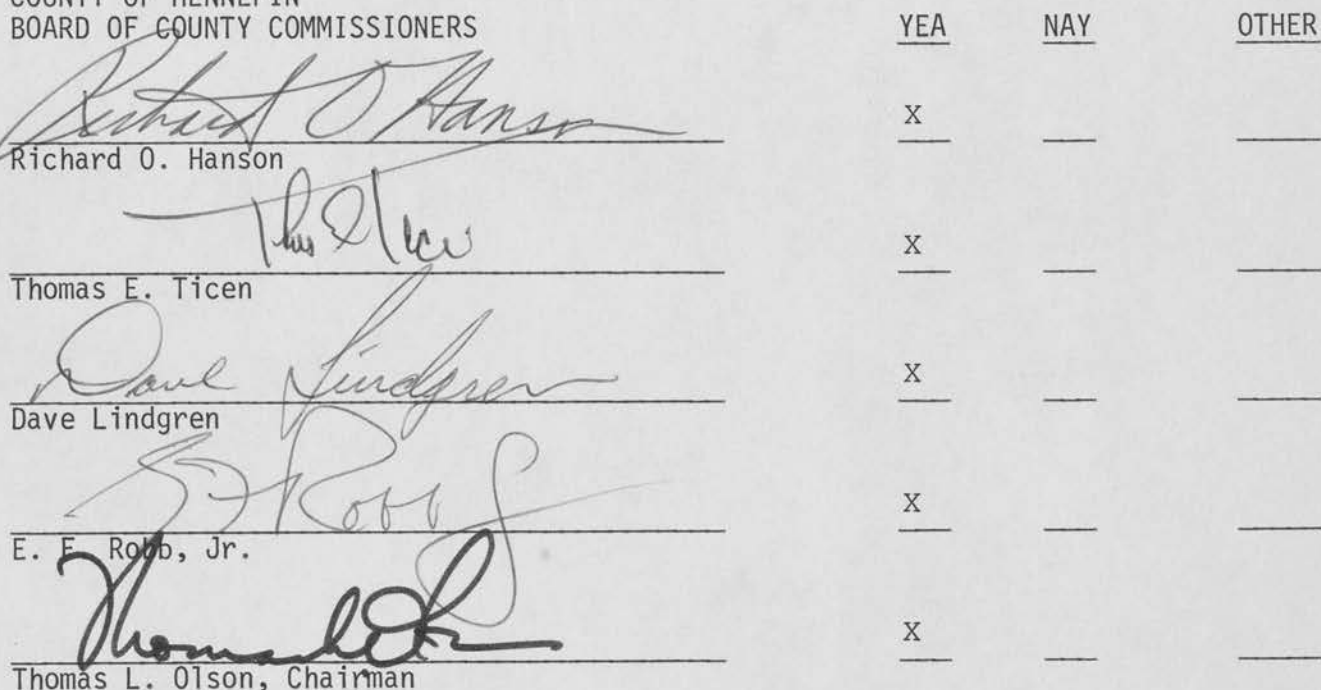 COUNTY OF HENNEPIN
BOARD OF COUNTY COMMISSIONERS YEA NAY OTHER
Richard O Hanson X
Richard O. Hanson
Thos E Ticen X
Thomas E. Ticen
Dave Lindgren X
Dave Lindgren
E F Robb Jr X
E. F. Robb, Jr.
Thomas L Olson X
Thomas L. Olson, Chairman